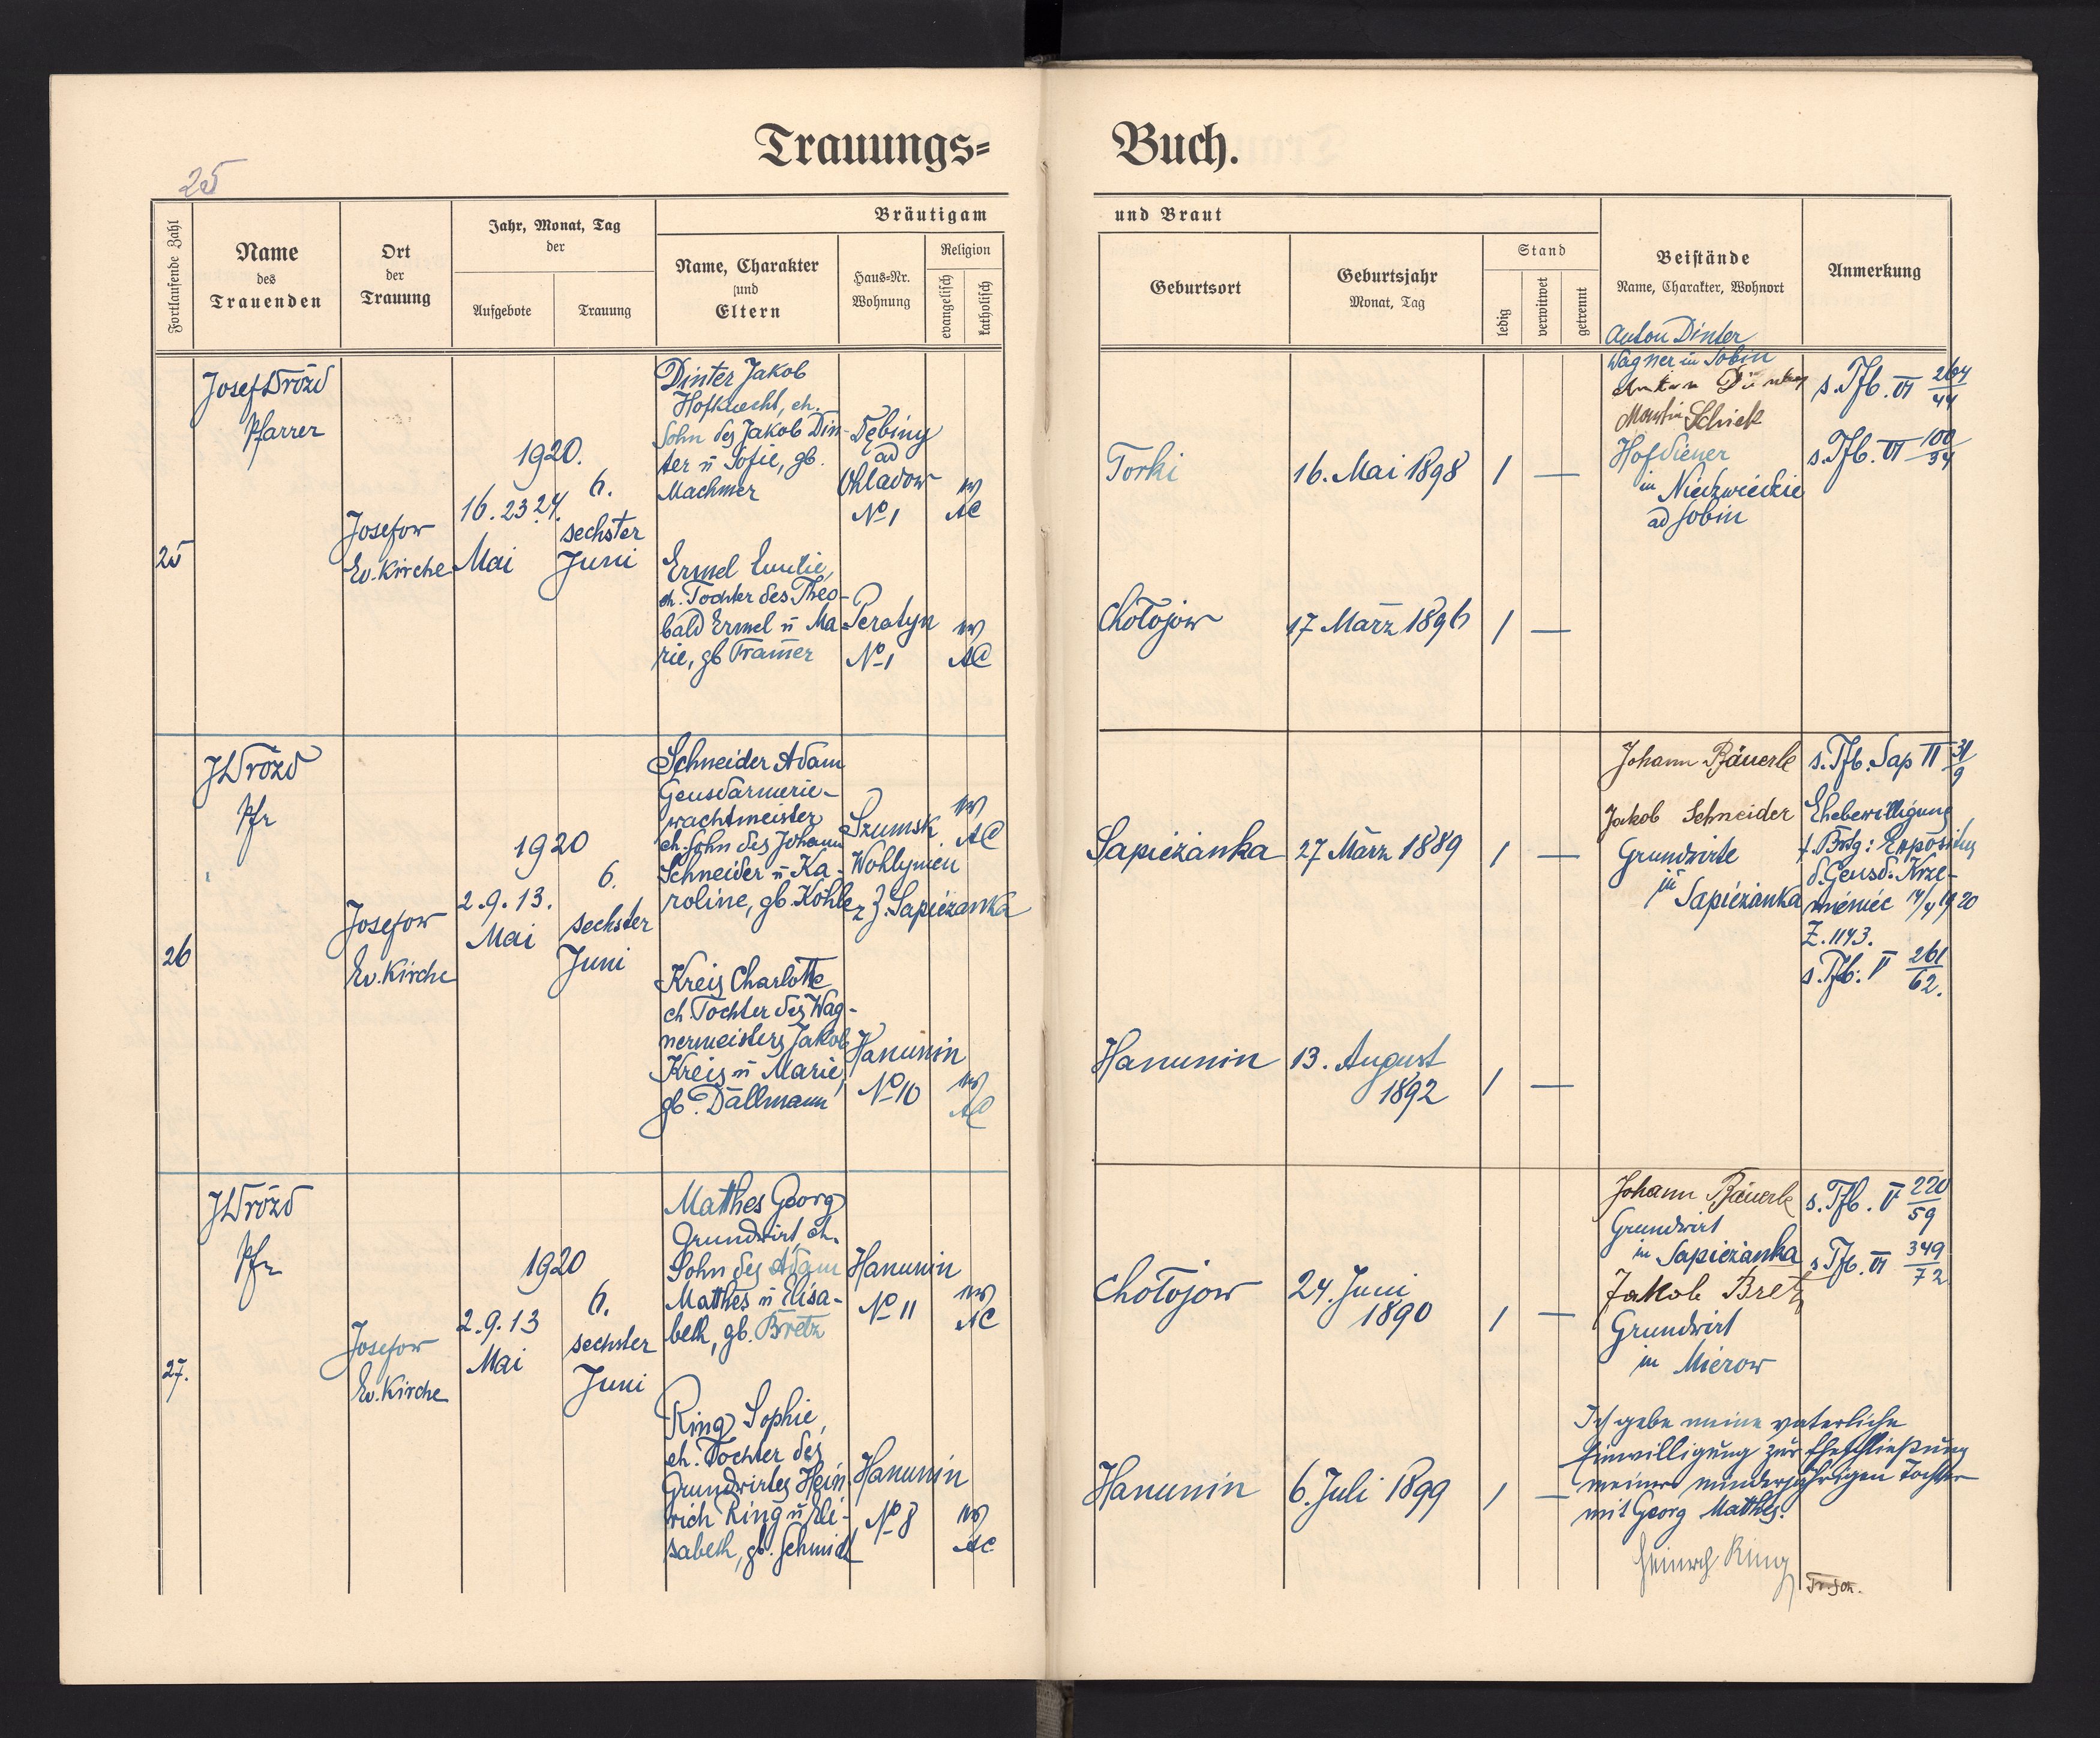 Trauungs= Buch.
25
Fortlaufende Zahl
Name
des
Trauenden
Ort
der
Trauung
Jahr, Monat, Tag
der
Aufgebote
Trauung
Bräutigam
Name, Charakter
und
Eltern
Haus=Nr.
Wohnung
Religion
evangelisch
katholisch
und Braut
Geburtsort
Geburtsjahr
Monat, Tag
Stand
ledig
verwitwet
getrennt
Beistände
Name, Charakter, Wohnort
Anmerkung
25
Josef Drozd
Pfarrer
Josefow
Ev. Kirche
1920.
16. 23 24.
Mai
6.
sechster
Juni
Dinter Jakob
Hofknecht, eh.
Sohn des Jakob Din-
ter u Sofie, gb.
Machmer
Dębiny
ad
Ohladow
No 1
AC
Torki
16. Mai 1898
1 —
Anton Dinter
Wagner in Sobin
Martin Schick
Hofdiener
in Niedzwiedzie
ad Sobin
s. Tfb. VI 264/44
s. Tfb. VI 100/34
Ermel Emilie,
eh. Tochter des Theo-
bald Ermel u Ma-
rie, gb Tramer
Peratyn
No 1
AC
Chołojow
17 März 1896
1 —
26
J Drozd
Pfr
Josefow
Ev. Kirche
1920
2. 9. 13.
Mai
6.
sechster
Juni
Schneider Adam
Gensdarmerie-
wachtmeister
eh. Sohn des Johann
Schneider u Ka-
roline, gb. Kohle
Szumsk
Wohlynien
z Z. Sapiezanka
AC
Sapiezanka
27 März 1889
1 —
Johann Bäuerle
Jakob Schneider
Grundwirte
in Sapiezanka
s. Tfb. Sap II 31/9
Ehebewilligung
d. Gensd. Krze-
mieniec 14/4 1920
Z. 1143.
s. Tfb: V 261/62.
Kreis Charlotte
eh Tochter des Wag-
nermeisters Jakob
Kreis u Marie,
gb. Dallmann
Hanunin
No 10
AC
Hanunin
13. August
1892
1 —
27.
J Drozd
Pfr
Josefow
Ev. Kirche
1920
2. 9. 13
Mai
6.
sechster
Juni
Matthes Georg
Grundwirt, eh.
Sohn des Adam
Matthes u Elisa-
beth, gb. Bretz
Hanunin
No 11
AC
Chołojow
24. Juni
1890
1 —
Johann Bäuerle
Grundwirt
in Sapiezanka
Jakob Bretz
Grundwirt
in Mierow
s. Tfb. V 220/59
s Tfb. VI 349/72
Ring Sophie,
eh. Tochter des
Grundwirtes Hein-
rich Ring u Eli-
sabeth, gb. Schmidt
Hanunin
No 8
AC
Hanunin
6. Juli 1899
1 —
Ich gebe meine vaterliche
Einwilligung zur Eheschließung
meiner minderjährigen Tochter
mit Georg Matthes.
Heinrich Ring